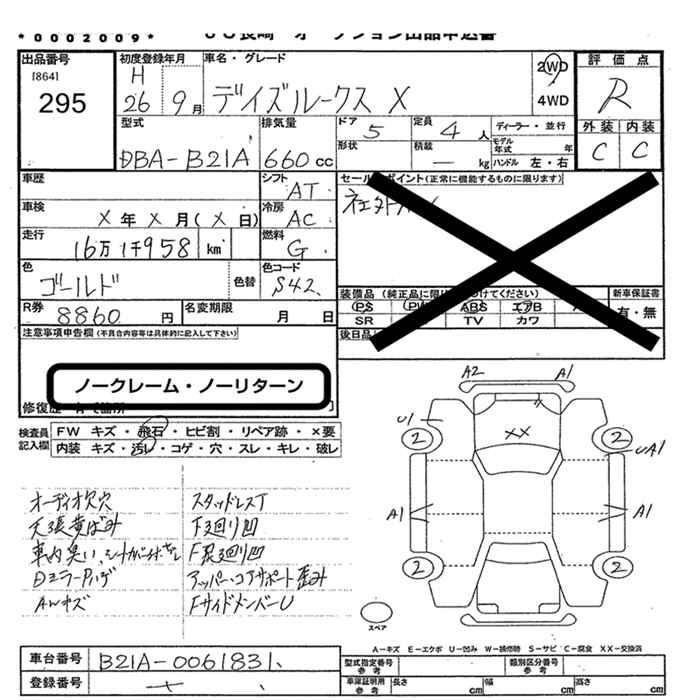 *0002009*
出品番号
[864]
295
初度登録年月
H
26 9月
車名・グレード
デイズルークス X
2WD
4WD
評価点
R
外装 内装
C C
型式
DBA-B21A
排気量
660cc
ドア
5
形状
定員
4人
積載
— kg
ディーラー・並行
モデル年式 年
ハンドル 左・右
車歴
シフト
AT
セールスポイント(正常に機能するものに限ります)
車検
X 年 X 月( X 日)
冷房
AC
走行
16万1千958 km
燃料
G
色
ゴールド
色替
色コード
S42
装備品
PS
ABS エアB
SR TV カワ
新車保証書
有・無
R券
8860円
名変期限
月 日
後日品
注意事項申告欄(不具合内容等は具体的に記入して下さい)
ノークレーム・ノーリターン
修復歴
検査員記入欄
FW キズ・飛石・ヒビ割・リペア跡・×要
内装 キズ・汚レ・コゲ・穴・スレ・キレ・破レ
オーディオ欠穴
天張黄ばみ
車内臭い
Dミラー
AWキズ
スタッドレスT
下廻り凹
F足廻り凹
アッパー・コアサポート歪み
FサイドメンバーU
A2 A1
U1
XX
2 2
UA1
A1 A1
2 2
スペア
A-キズ E-エクボ U-凹み W-補修跡 S-サビ C-腐食 XX-交換済
車台番号
B21A-0061831
登録番号
型式指定番号 参考
類別区分番号 参考
車庫証明用 参考
長さ cm
幅 cm
高さ cm